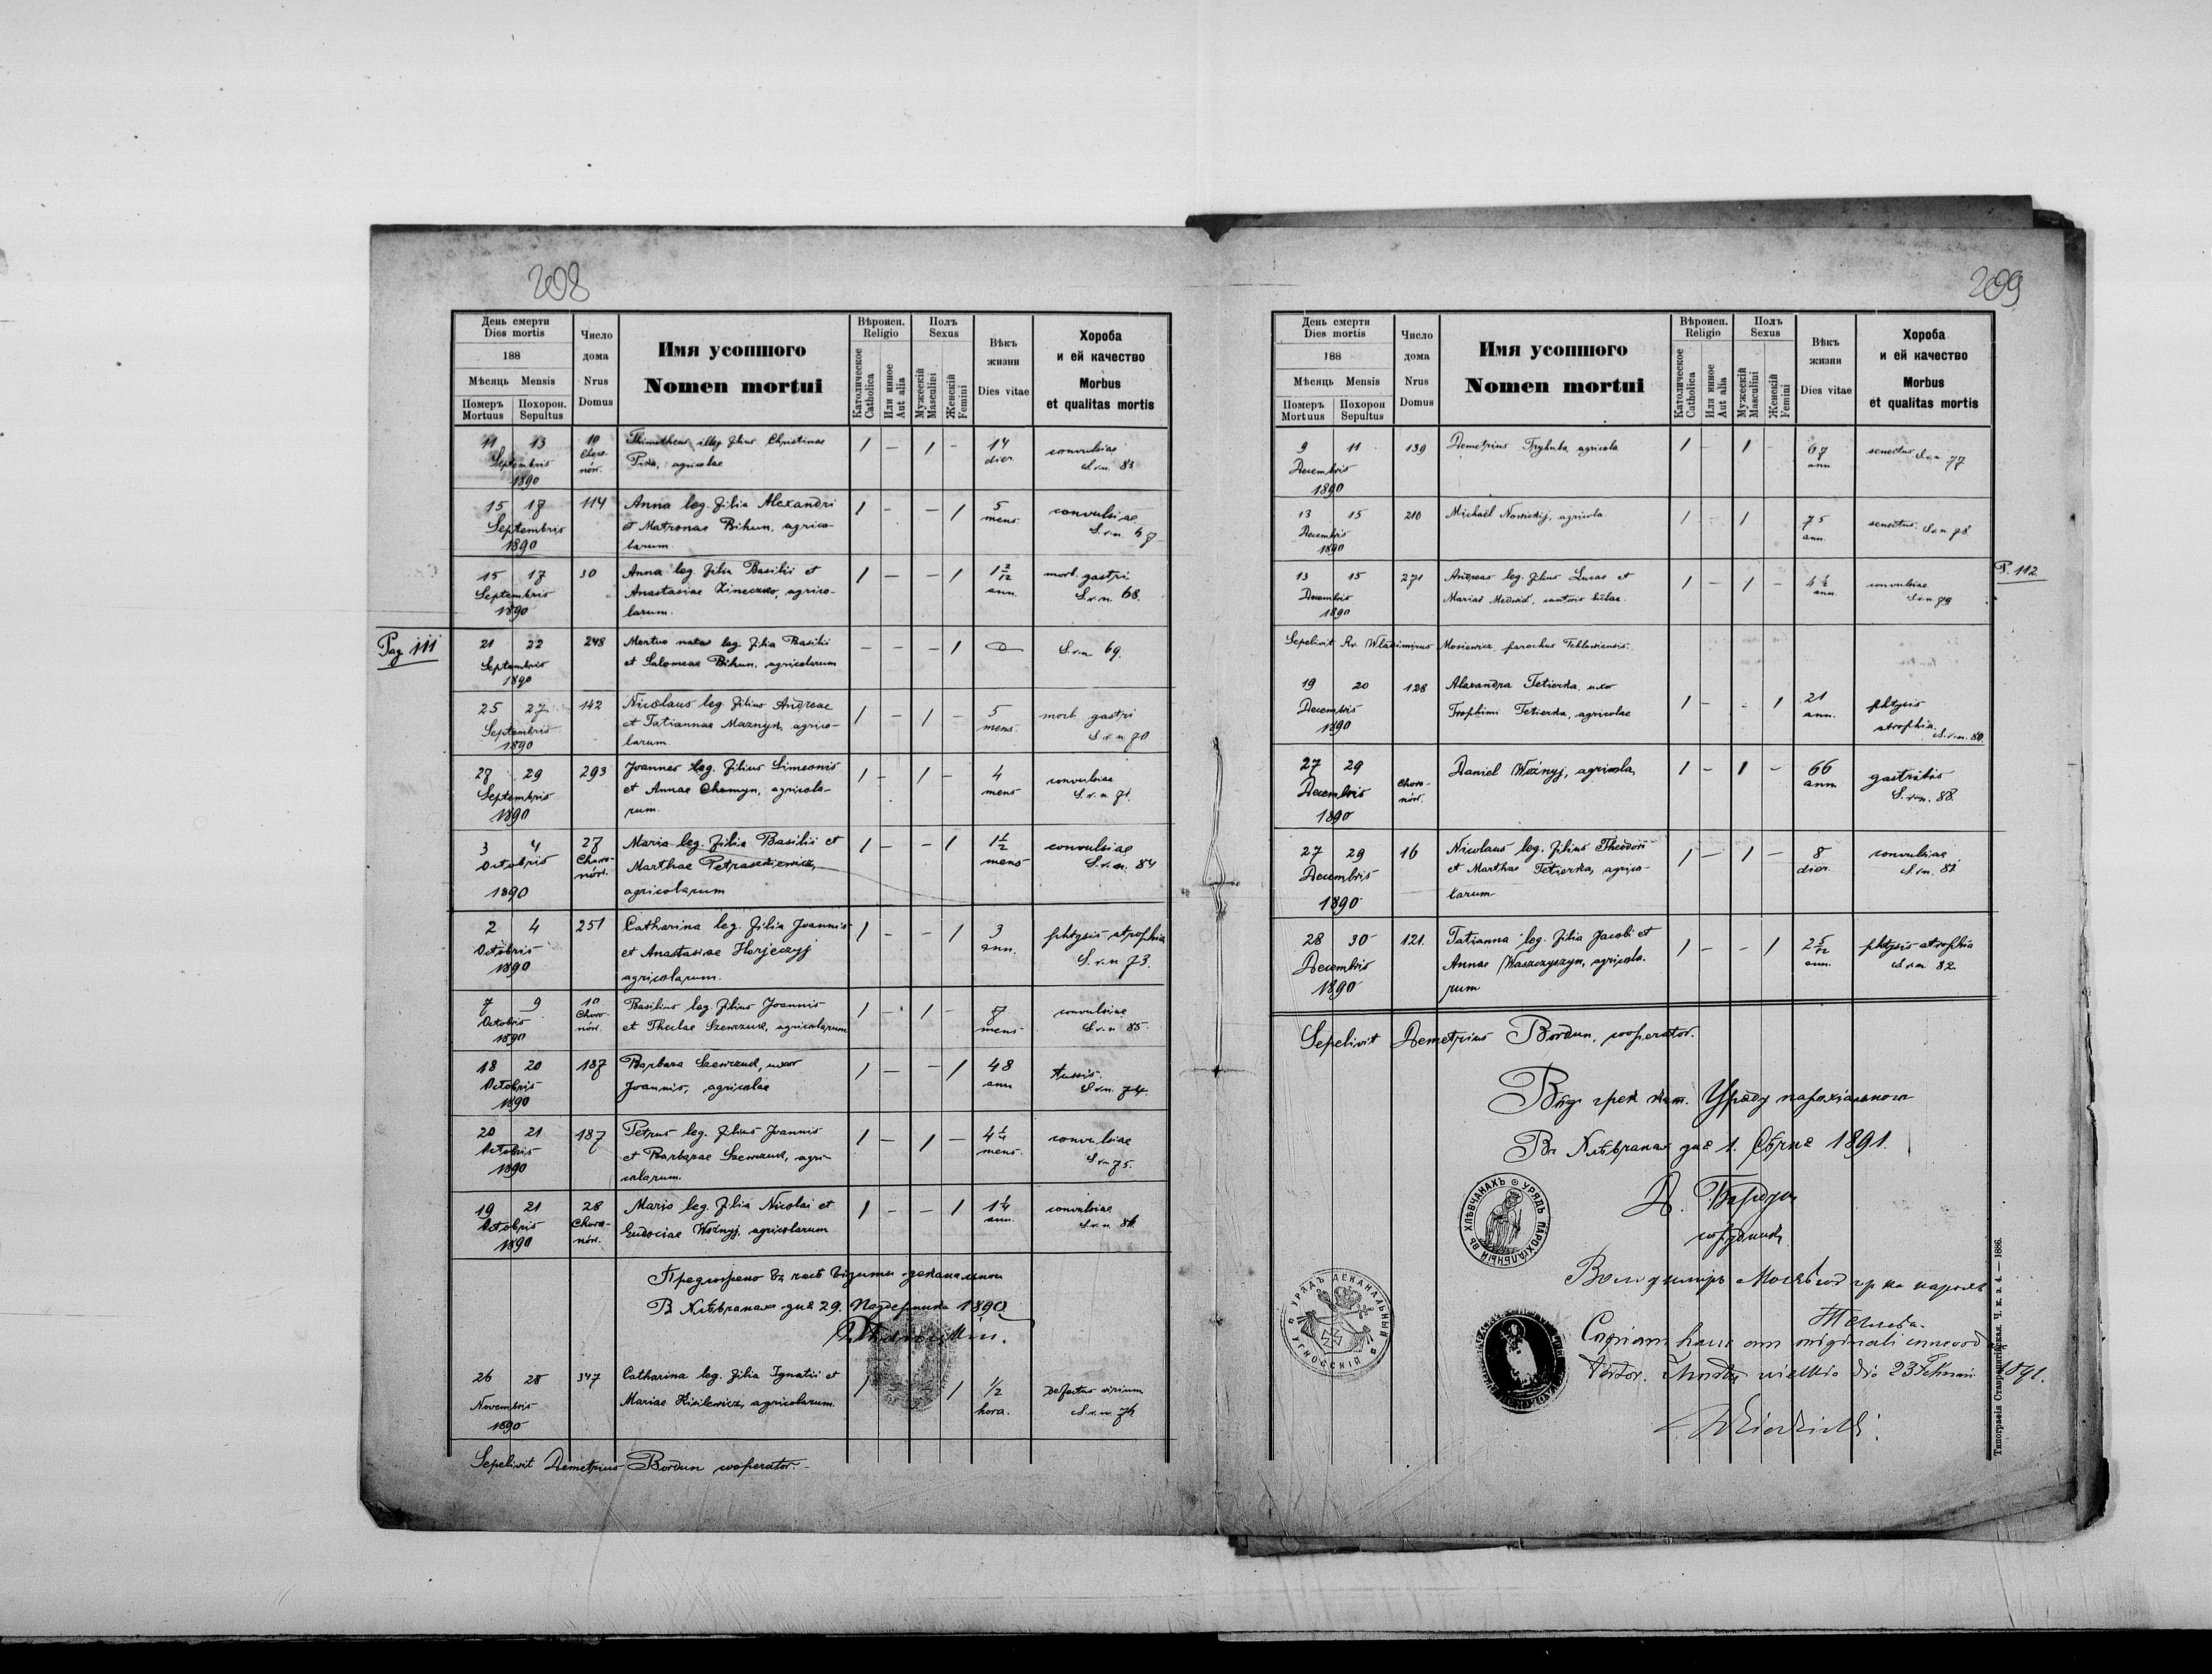 208
День смерти
Dies mortis
188
Мѣсяць Mensis
Померъ Mortuus
Похорон. Sepultus
Число дома
Nrus Domus
Имя усопшого
Nomen mortui
Вѣроисп.
Religio
Католическое Catholica
Или инное Aut alia
Полъ
Sexus
Мужескій Masculini
Женскій Femini
Вѣкъ жизни
Dies vitae
Хороба
и ей качество
Morbus
et qualitas mortis
11 13 10 Thimotheus illeg. filius Christinae 1 – 1 – 14 convulsiae
Septembris Choro- Pira, agricolae dier. S.r.n. 83
1890 nów.
15 17 114 Anna leg. filia Alexandri 1 – – 1 5 convulsiae
Septembris et Matronae Bihun, agrico- mens. S.r.n. 67
1890 larum.
15 17 30 Anna leg. filia Basilii et 1 – – 1 1 2/12 morb. gastri
Septembris Anastasiae Zineczko, agrico- ann. S.r.n. 68.
1890 larum.
Pag 111
21 22 248 Mortuo nata leg filia Basilii – – – 1 S.r.n 69.
Septembris et Salomeae Bihun, agricolarum
1890
25 27 142 Nicolaus leg. filius Andreae 1 – 1 – 5 morb. gastri
Septembris et Tatiannae Maznyk, agrico- mens. S.r.n 70
1890 larum.
27 29 293 Joannes leg. filius Simeonis 1 – 1 – 4 convulsiae
Septembris et Annae Chomyn, agricola- mens S.r.n 71.
1890 rum.
3 4 27 Maria leg. filia Basilii et 1 – – 1 1 1/2 convulsiae
Octobris Choro- Marthae Petraszkiewicz, mens S.r.n. 84
1890 nów. agricolarum
2 4 251 Catharina leg. filia Joannis 1 – – 1 3 phtysis atrophia
Octobris et Anastasiae Horjeczyj ann. S.r.n 73.
1890 agricolarum.
7 9 10 Basilius leg. filius Joannis 1 – 1 – convulsiae
Octobris Choro- et Theclae Szewczuk, agricolarum mens. S.r.n 85.
1890 nów.
18 20 187 Barbara Szewczuk, uxor 1 – – 1 48 tussis.
Octobris Joannis, agricolae ann S.r.n. 74.
1890
20 21 187 Petrus leg. filius Joannis 1 – 1 – 4 1/4 convulsiae
Octobris et Barbarae Szewczuk, agri- mens. S.r.n 75.
1890 colarum.
19 21 28 Maria leg. filia Nicolai et 1 – – 1 1 1/4 convulsiae
Octobris Choro- Eudociae Woźnyj, agricolarum ann. S.r.n 86.
1890 nów.
Предложено въ часѣ візиты деканальной
В Хлѣвчанах дня 29. 1890
26 28 347 Catharina leg. filia Ignatii et 1 1 1/2 defectus virium
Novembris Mariae Kisilewicz, agricolarum. hora. S.r.n. 76
1890
Sepelivit Demetrius Bordun cooperator.
209
День смерти
Dies mortis
188
Мѣсяць Mensis
Померъ Mortuus
Похорон Sepultus
Число дома
Nrus Domus
Имя усопшого
Nomen mortui
Вѣроисп.
Religio
Католическое Catholica
Или инное Aut alia
Полъ
Sexus
Мужескій Masculini
Женскій Femini
Вѣкъ жизни
Dies vitae
Хороба
и ей качество
Morbus
et qualitas mortis
9 11 139 Demetrius Tryhuba, agricola 1 – 1 – 67 senectus S.r.n. 77
Decembris ann
1890
13 15 210 Michaël Nowickij, agricola 1 – 1 75 senectus. S.r.n 78
Decembris ann.
1890
P. 112
13 15 271 Andreas leg. filius Lucae et 1 – 1 – 4 1/2 convulsiae
Decembris Mariae Medwid, cantoris ann. S.r.n. 79
1890
Sepelivit Rv. Wladimirus Mosiewicz, parochus Tehlowiensis.
19 20 128 Alexandra Tetierka, uxor 1 – – 1 21 phtysis
Decembris Trophimi Tetierka, agricolae ann. atrophia S.r.n. 80.
1890
27 29 Daniel Woźnyj, agricola, 1 – 1 – 66 gastritis
Decembris Choro- ann. S.r.n. 88.
1890 nów.
27 29 16 Nicolaus leg. filius Theodori 1 – 1 – 8 convulsiae
Decembris et Marthae Tetierka, agrico- dier. S.r.n. 81
1890 larum
28 30 121. Tatianna leg. filia Jacobi et 1 – – 1 2 5/12 phtysis atrophia
Decembris Annae Waszczyszyn, agricola- ann. S.r.n 82.
1890 rum
Sepelivit Demetrius Bordun, cooperator.
Вôдъ грек кат. Уряду парохіального
Въ Хлѣвчанах дня 1. 1891.
Д. Бордун
сотрудникъ
УРЯДЪ ПАРОХІАЛЬНЫЙ ВЪ ХЛѢВЧАНАХЪ
УРЯДЪ ДЕКАНАЛЬНЫЙ УГНОВСКІЙ
Copiam hanc cum originali
23 1891.
Типографія Ставропигійская. Ч. к. а. 4. — 1886.